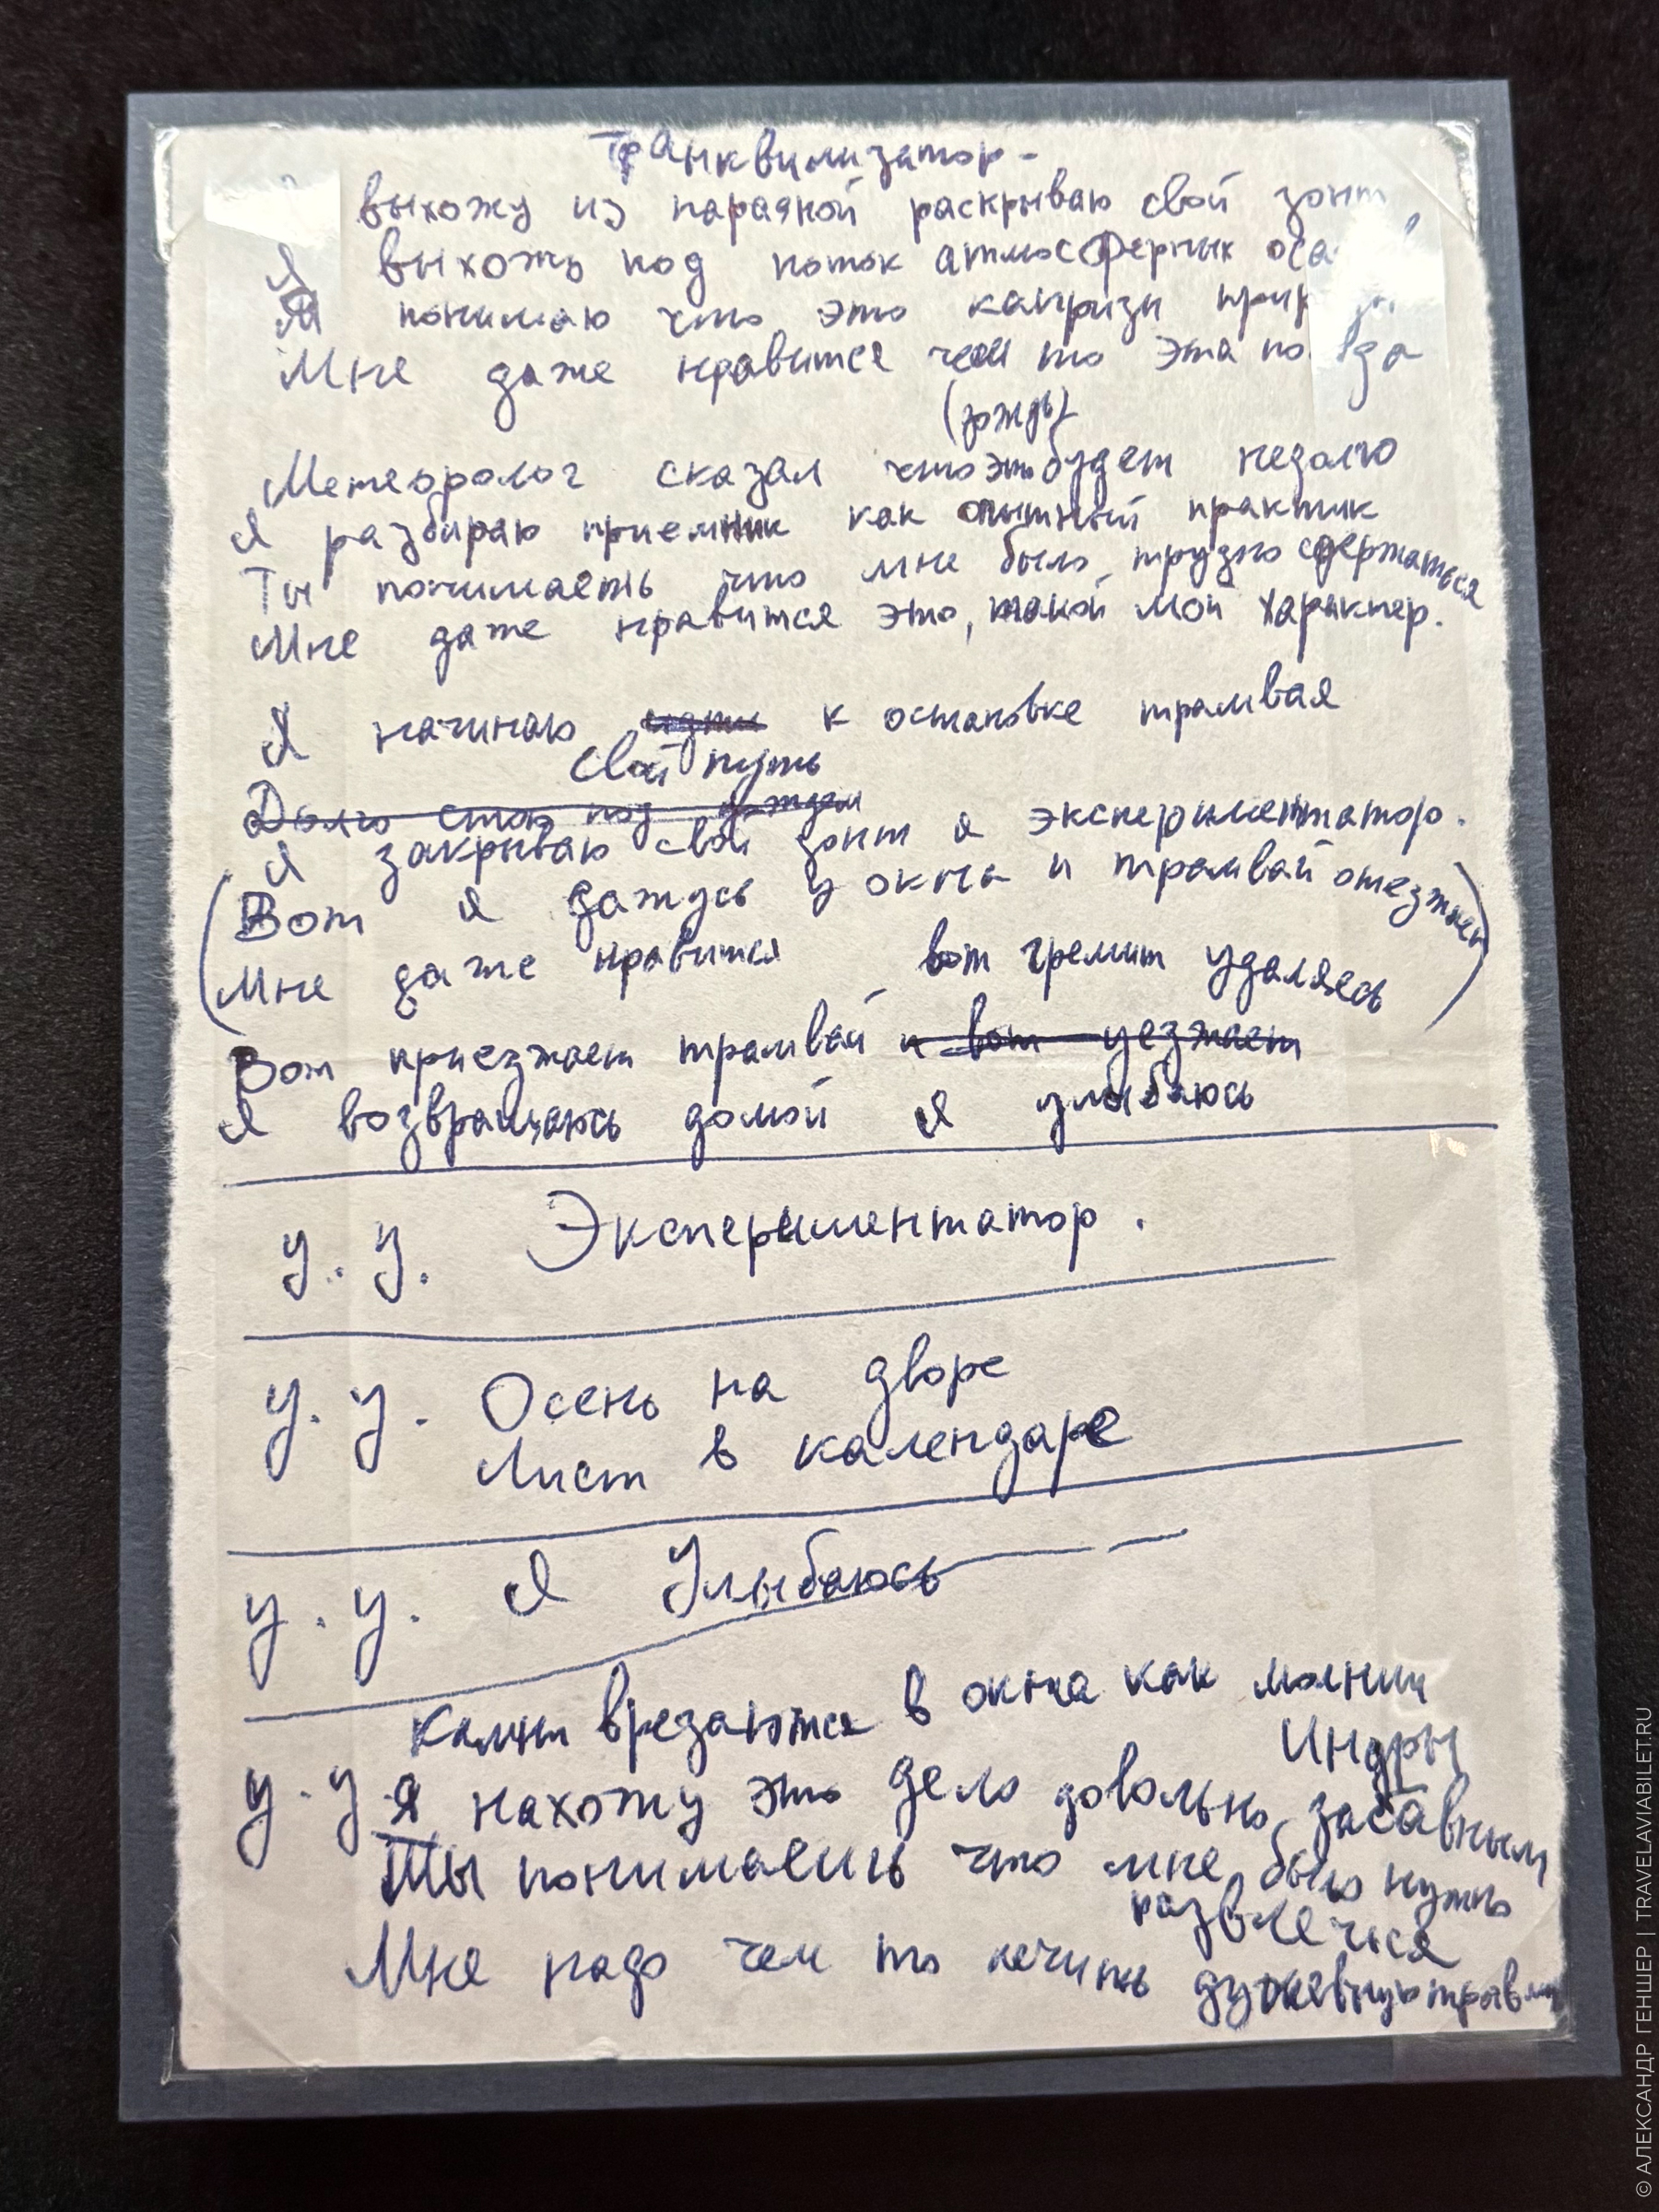 Транквилизатор -
выхожу из парадной раскрываю свой зонт
Я выхожу под поток атмосферных
Я понимаю что это капризы
Мне даже нравится чем то эта
(дождь)
Метеоролог сказал что это будет недолго
Я разбираю приемник как опытный практик
Ты понимаеть что мне было трудно сдержаться
Мне даже нравится это, такой мой характер.
Я начинаю идти к остановке трамвая
свой путь
Долго стою под дождем
Я закрываю свой зонт я экспериментатор.
(Вот я сажусь у окна и трамвай отезжает
Мне даже нравится вот гремит удаляясь)
Вот приезжает трамвай и вот уезжает
Я возвращаюсь домой я улыбаюсь
У. У. Экспериментатор.
У. У. Осень на дворе
Лист в календаре
У. У. Я Улыбаюсь
Камни врезаются в окна как молнии
Индры
У. У Я нахожу это дело довольно забавным
Ты понимаешь что мне было нужно
развлечься
Мне надо чем то лечить душевную травму
© АЛЕКСАНДР ГЕНШЕР | TRAVELAVIABILET.RU